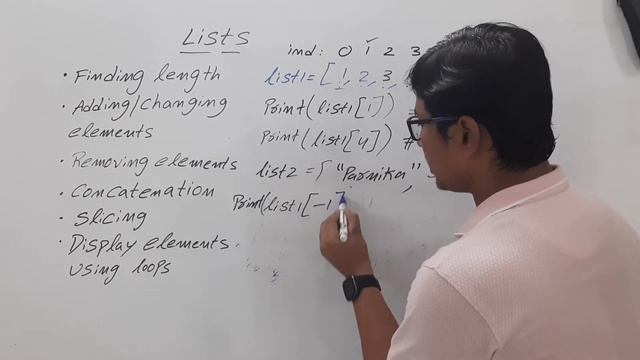 Lists
• Finding length
• Adding/changing
elements
• Removing elements
• Concatenation
• Slicing
• Display elements
using loops
ind: 0 1 2 3
list1 = [ 1, 2, 3,
Print(list1[1]) =
Print(list1[4]) #
list2 = [ "Parnika",
Print(list1[-1]